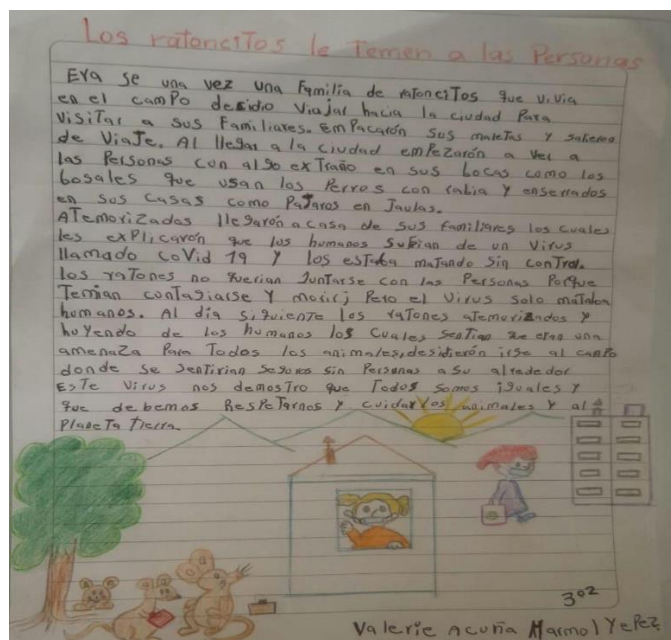 Los ratoncitos le Temen a las Personas
Era se una vez una Familia de ratoncitos que vivia
en el campo desidio Viajar hacia la ciudad Para
Visitar a sus Familiares. Empacarón sus maletas y salieron
de Viaje. Al llegar a la ciudad empezarón a ver a
las Personas con algo exTraño en sus bocas como los
bosales que usan los Perros con rabia y enserrados
en sus casas como Pajaros en Jaulas.
ATemorizados llegarón a casa de sus familiares los cuales
les explicarón que los humanos sufrian de un Virus
llamado covid 19 y los estaba matando sin control.
los ratones no querian Juntarse con las Personas Porque
Temian contagiarse y morir; Pero el Virus solo mataba
humanos. Al día siguiente los ratones atemorizados y
huyendo de los humanos los cuales sentian que eran una
amenaza Para Todos los animales, desidierón irse al campo
donde se sentirian seguros sin Personas a su alrededor
Este Virus nos demostro que Todos somos iguales y
que debemos Respetarnos y cuidar los animales y al
Planeta tierra.
3°2
Valerie Acuña Marmol Yepez